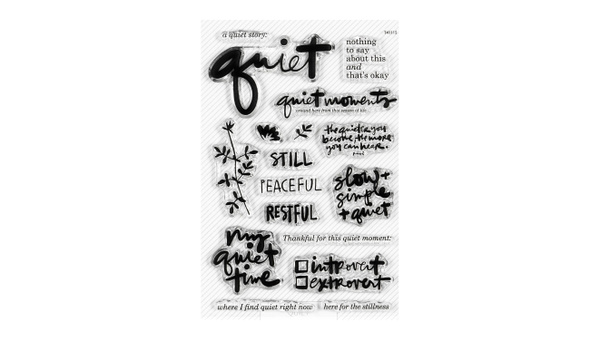 a quiet story:
quiet
nothing
to say
about this
and
that's okay
quiet moments
the quieter you
become, the more
you can hear.
STILL
PEACEFUL
RESTFUL
slow +
simple
+ quiet
my
quiet
time
Thankful for this quiet moment:
introvert
extrovert
where I find quiet right now
here for the stillness